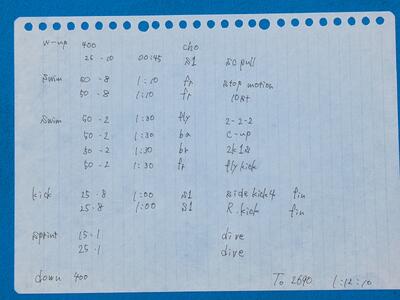 w-up 400 cho
25 - 10 00:45 s1 so pull
swim 50 - 8 1:10 fr stop motion
50 - 8 1:10 fr
swim 50 - 2 1:30 fly 2-2-2
50 - 2 1:30 ba c-up
50 - 2 1:30 br
50 - 2 1:30 fr fly kick
kick 25 - 8 1:00 s1 side kick 4 fin
25 - 8 1:00 s1 R. kick fin
sprint 15 - 1 dive
25 - 1 dive
down 400 To 2690 1:12:10